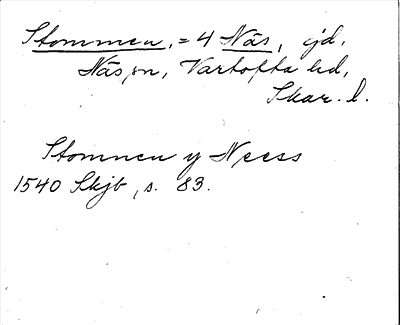 Stommen, = 4 Näs, gd,
Näs, sn, Vartofta hd,
Skar. l.
Stomnen y Neess
1540 Skjb, s. 83.